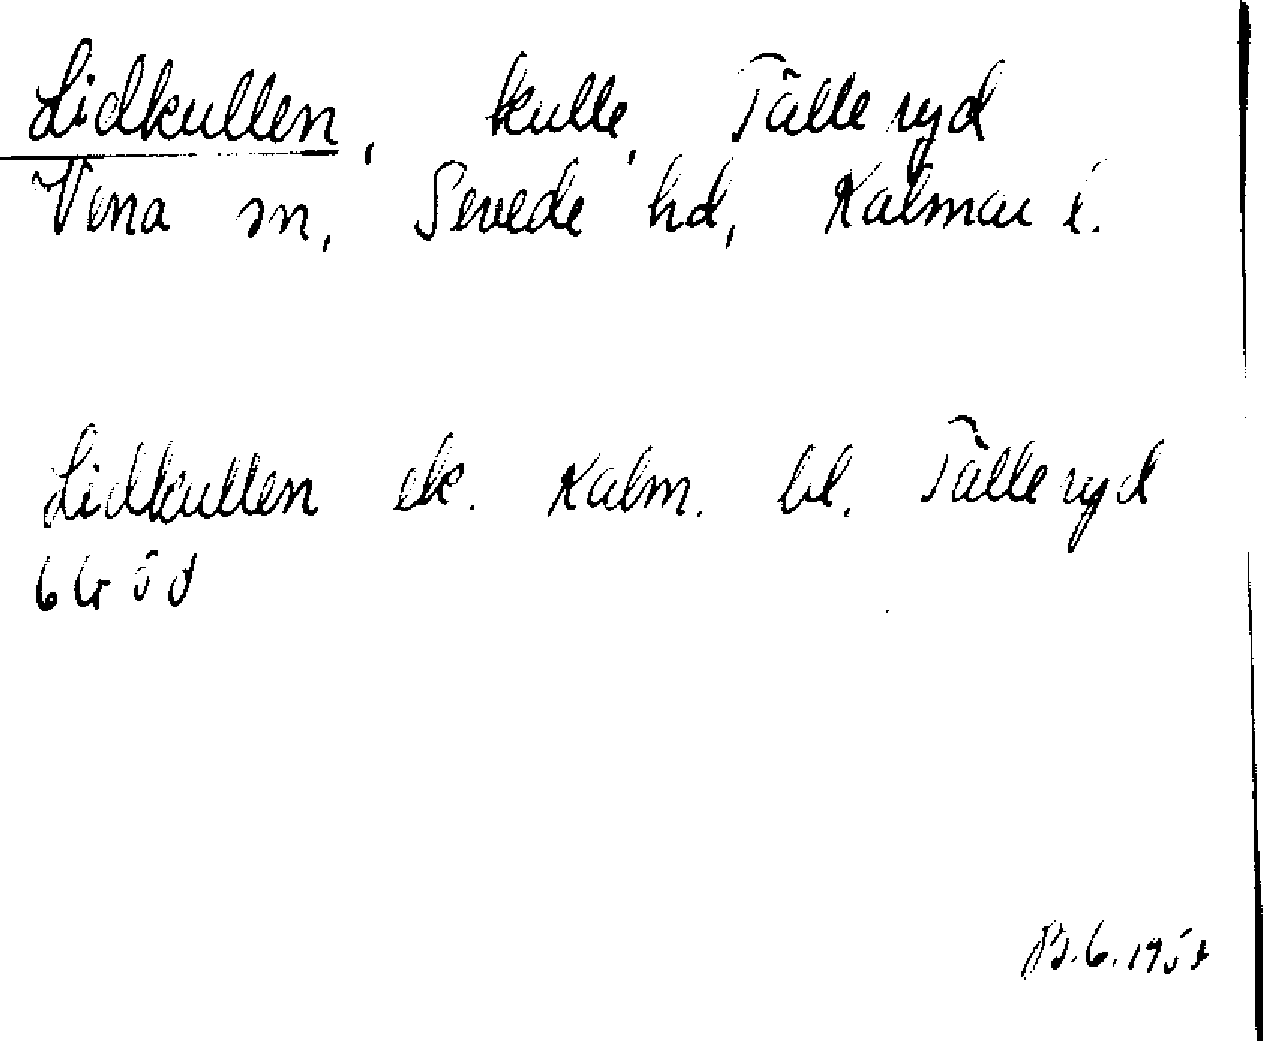 Lidkullen, kulle, Tälleryd
Vena sn, Sevede hd, Kalmar l.
Lidkullen ek. Kalm. bl. Tälleryd
6G5d
B.G. 195